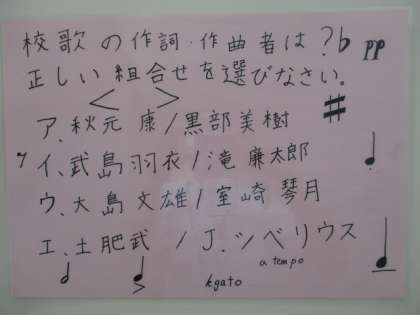 校歌の作詞·作曲者は?♭ pp
正しい組合せを選びなさい。
< >
ア.秋元 康/黒部美樹 #
イ、武島羽衣/滝 廉太郎
ウ、大島文雄/室崎琴月
エ、土肥武 / J.ツベリウス
a tempo
kgato